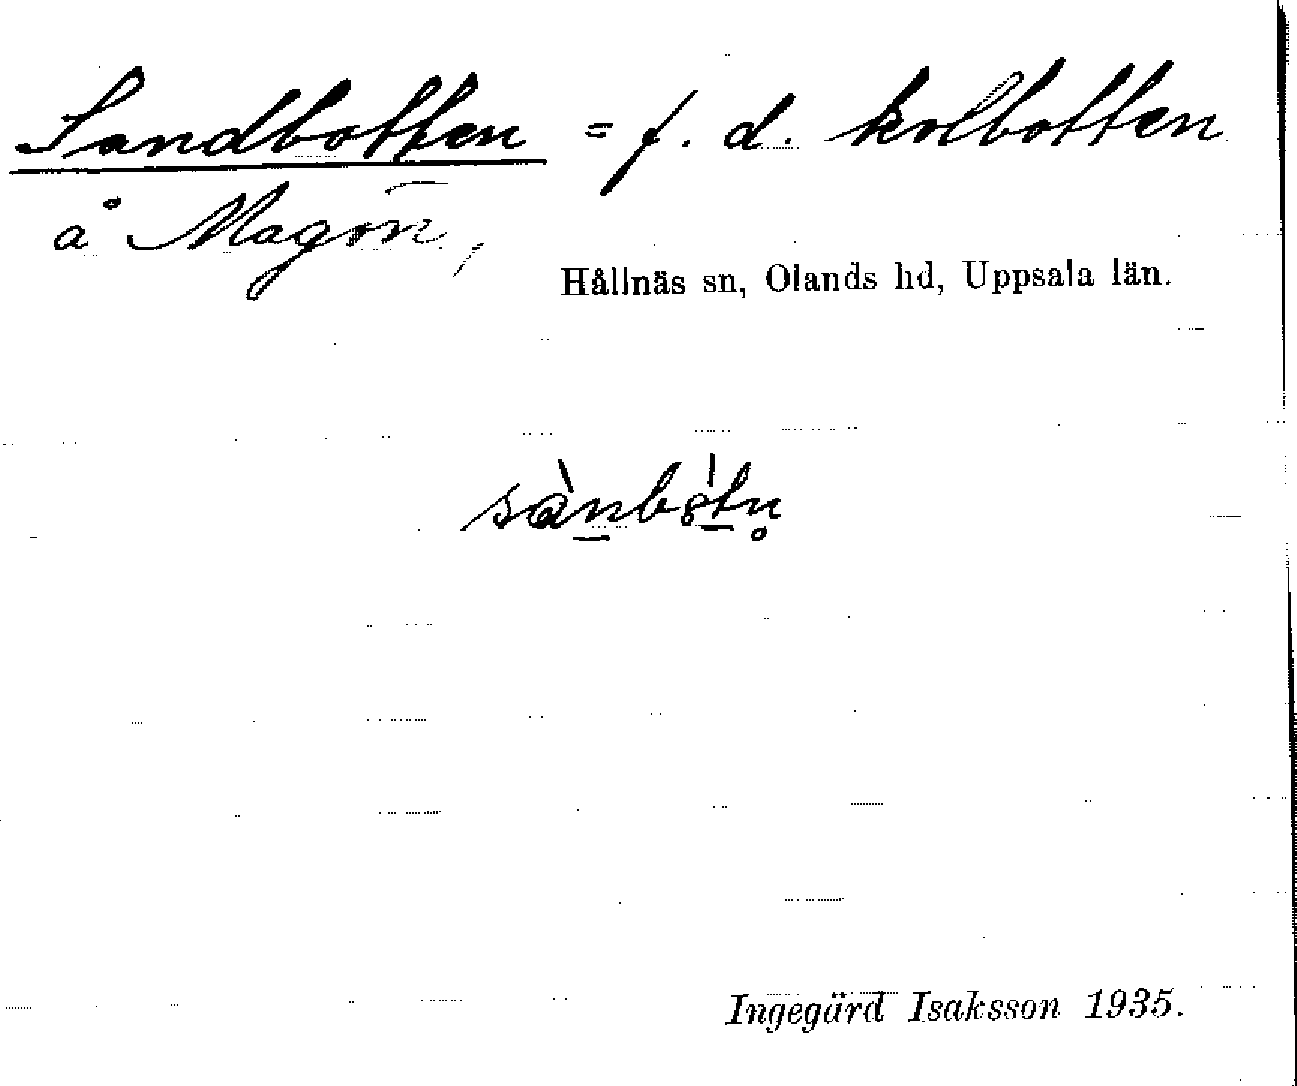 Sandbotten = f. d. kolbotten
å Magön,
Hållnäs sn, Olands hd, Uppsala län.
sànbòtn̥
Ingegärd Isaksson 1935.